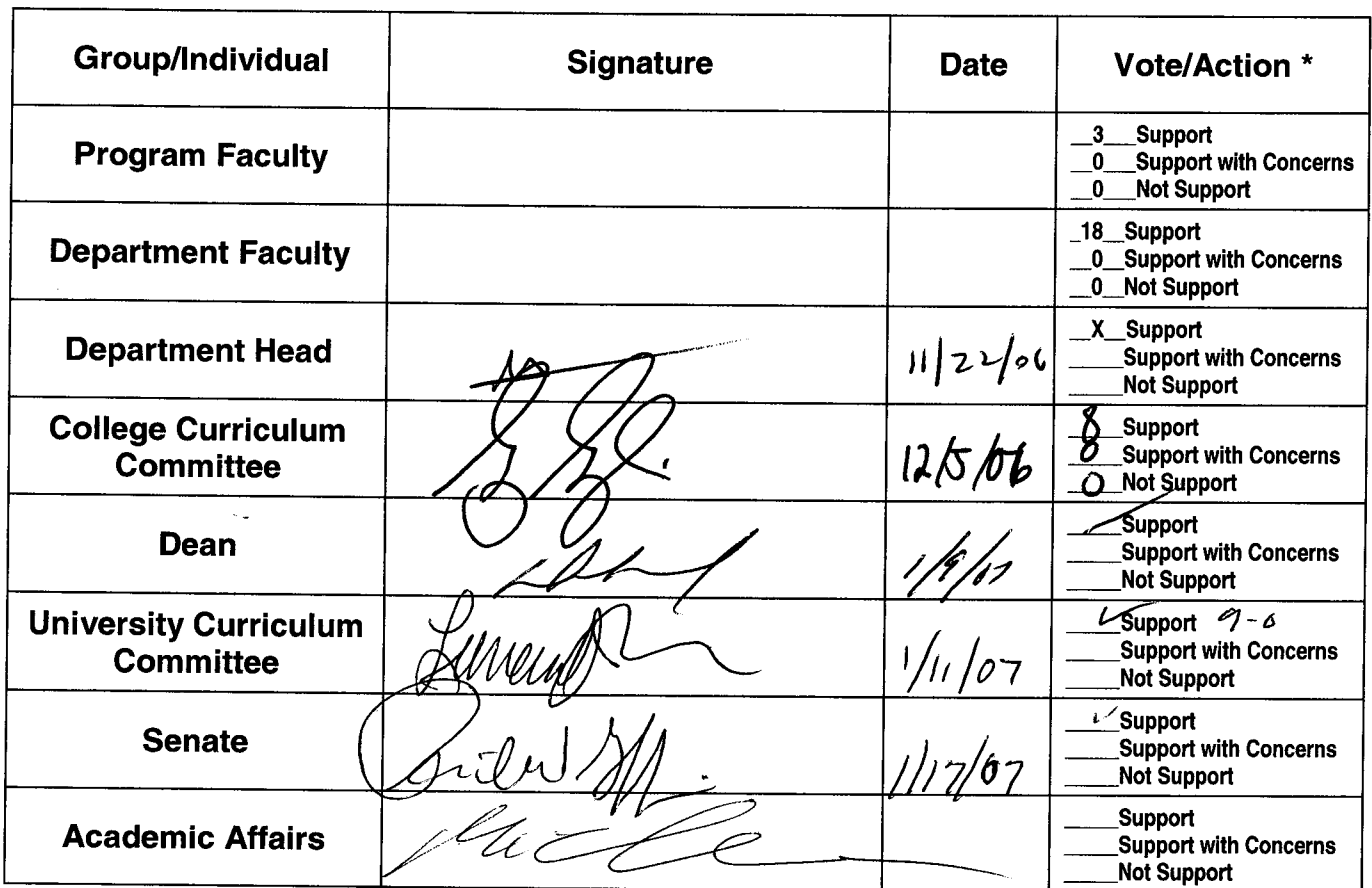 Group/Individual Signature Date Vote/Action *
Program Faculty
__3___Support
__0___Support with Concerns
__0___Not Support
Department Faculty
_18__Support
__0__Support with Concerns
__0__Not Support
Department Head 11/22/06
__X__Support
_____Support with Concerns
_____Not Support
College Curriculum
Committee
12/5/06
8 Support
0 Support with Concerns
0 Not Support
Dean 1/9/07
✓ Support
_____Support with Concerns
_____Not Support
University Curriculum
Committee
1/11/07
✓ Support 9-0
_____Support with Concerns
_____Not Support
Senate 1/17/07
✓ Support
_____Support with Concerns
_____Not Support
Academic Affairs
_____Support
_____Support with Concerns
_____Not Support